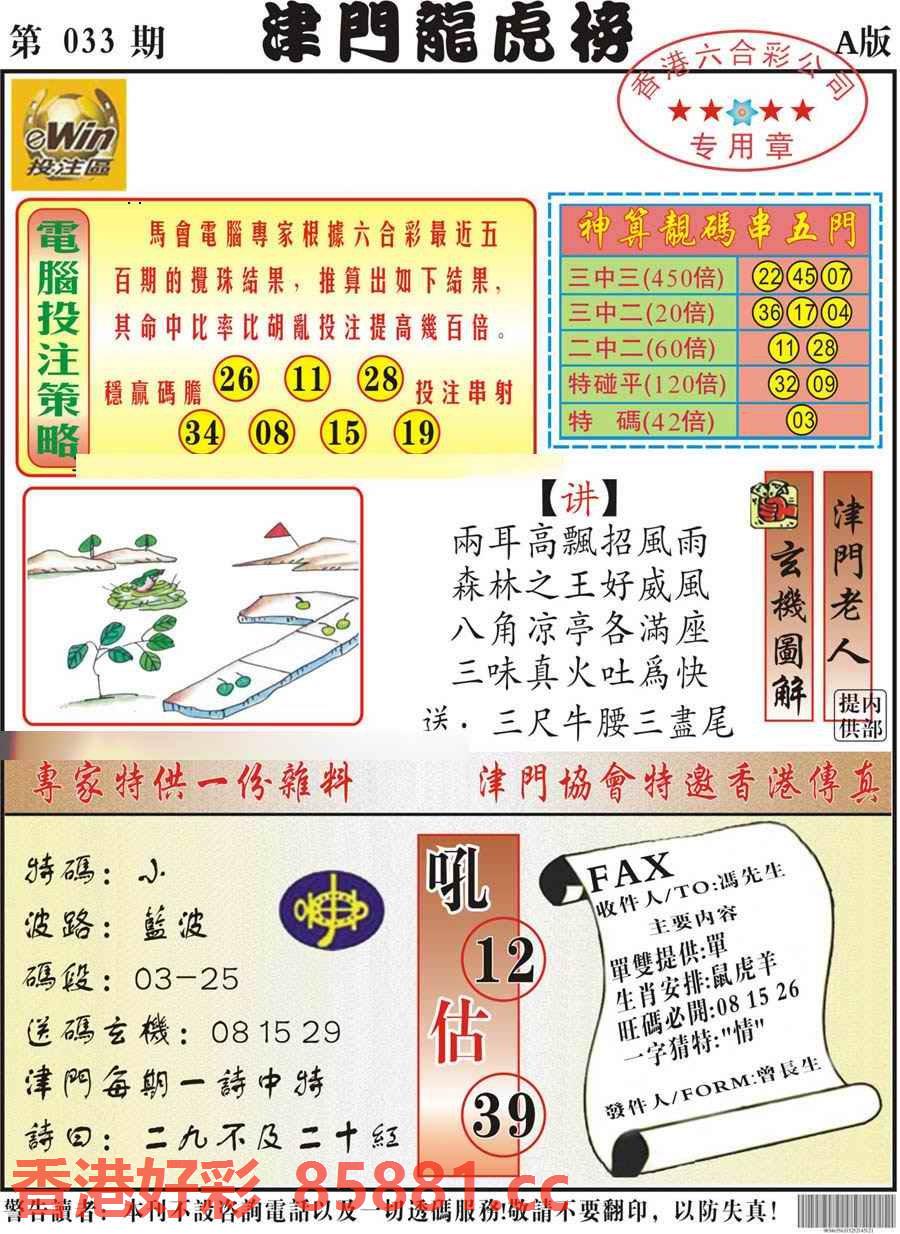 第 033 期
津門龍虎榜
A版
香港六合彩公司
专用章
eWin
投注區
電腦投注策略
馬會電腦專家根據六合彩最近五
百期的攪珠結果，推算出如下結果，
其命中比率比胡亂投注提高幾百倍。
穩贏碼膽 26 11 28 投注串射
34 08 15 19
神算靚碼串五門
三中三(450倍) 22 45 07
三中二(20倍) 36 17 04
二中二(60倍) 11 28
特碰平(120倍) 32 09
特 碼(42倍) 03
【讲】
兩耳高飄招風雨
森林之王好威風
八角凉亭各滿座
三味真火吐爲快
送：三尺牛腰三盡尾
玄機圖解
津門老人
内部提供
專家特供一份雜料
津門協會特邀香港傳真
特碼：小
波路：藍波
碼段：03-25
送碼玄機：08 15 29
津門每期一詩中特
詩曰：二九不及二十紅
吼
12
估
39
FAX
收件人/TO:馮先生
主要内容
單雙提供:單
生肖安排:鼠虎羊
旺碼必開:08 15 26
一字猜特:"情"
發件人/FORM:曾長生
香港好彩 85881.cc
警告讀者：本刊不設咨詢電話以及一切透碼服務!敬請不要翻印，以防失真!